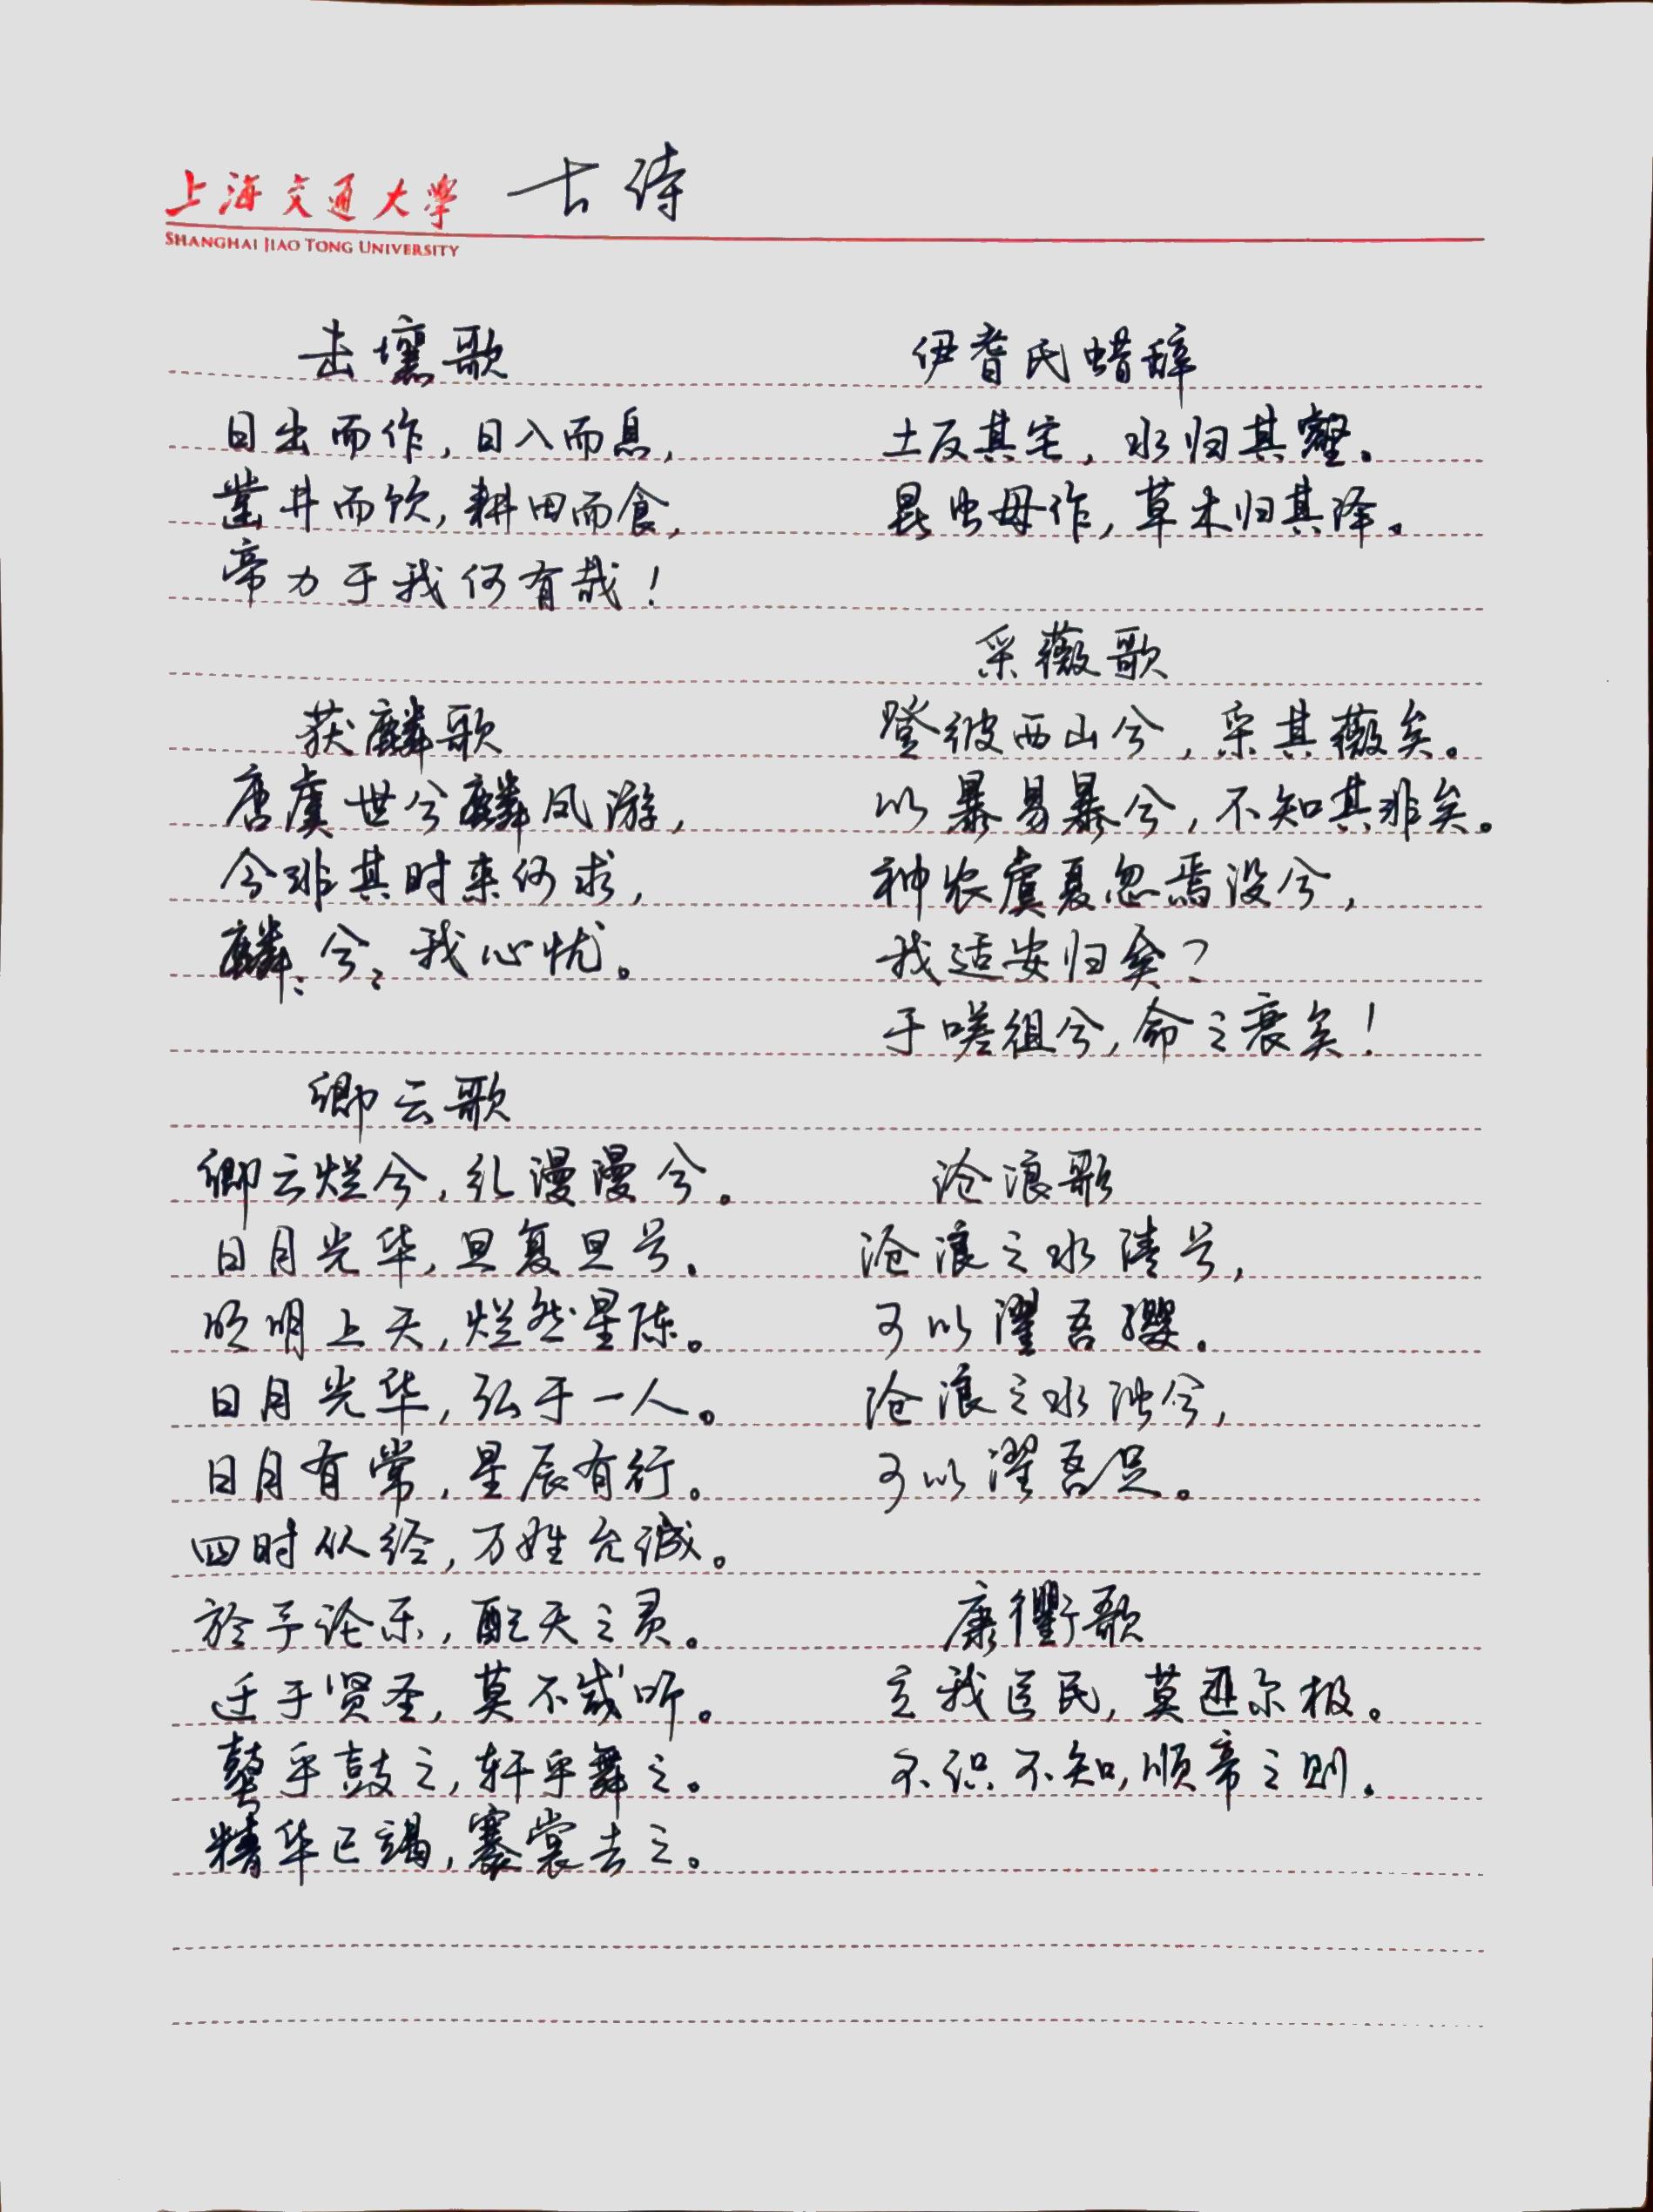 上海交通大學 古诗
SHANGHAI JIAO TONG UNIVERSITY
击壤歌
日出而作,日入而息,
凿井而饮,耕田而食,
帝力于我何有哉!
获麟歌
唐虞世兮麟凤游,
今非其时来何求,
麟:兮:我心忧。
卿云歌
卿云烂兮,糺漫漫兮。
日月光华,旦复旦兮。
明明上天,烂然星陈。
日月光华,弘于一人。
日月有常,星辰有行。
四时从经,万姓允诚。
於予论乐,配天之灵。
迁于贤圣,莫不咸听。
鼚乎鼓之,轩乎舞之。
精华已竭,褰裳去之。
伊耆氏蜡辞
土反其宅,水归其壑。
昆虫毋作,草木归其泽。
采薇歌
登彼西山兮,采其薇矣。
以暴易暴兮,不知其非矣。
神农虞夏忽焉没兮,
我适安归矣?
于嗟徂兮,命之衰矣!
沧浪歌
沧浪之水清兮,
可以濯吾缨。
沧浪之水浊兮,
可以濯吾足。
康衢歌
立我烝民,莫匪尔极。
不识不知,顺帝之则。